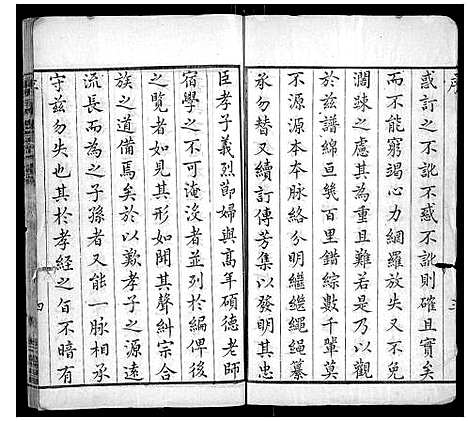 序
惑訂之不訛不惑不訛則確且實矣
而不能窮竭心力網羅放失又不免
濶疎之慮其為重且難若是乃以觀
於兹譜綿亘幾百里錯綜數千軰莫
不源源本本脉絡分明繼繼繩繩纂
承勿替又續訂傳芳集以發明其忠
三
臣孝子義烈節婦與髙年碩德老師
宿學之不可淹没者並列於編俾後
之覽者如見其形如聞其聲糾宗合
族之道備焉矣於以歎孝子之源遠
流長而為之子孫者又能一脉相承
守兹勿失也其於孝經之旨不暗有
四